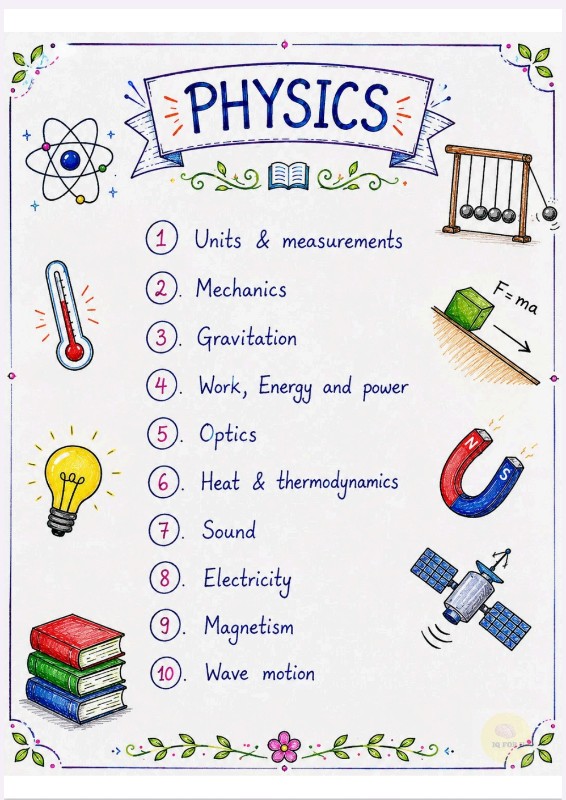 PHYSICS
1 Units & measurements
2. Mechanics
3. Gravitation
4. Work, Energy and power
5. Optics
6. Heat & thermodynamics
7. Sound
8. Electricity
9. Magnetism
10. Wave motion
F = ma
N
S